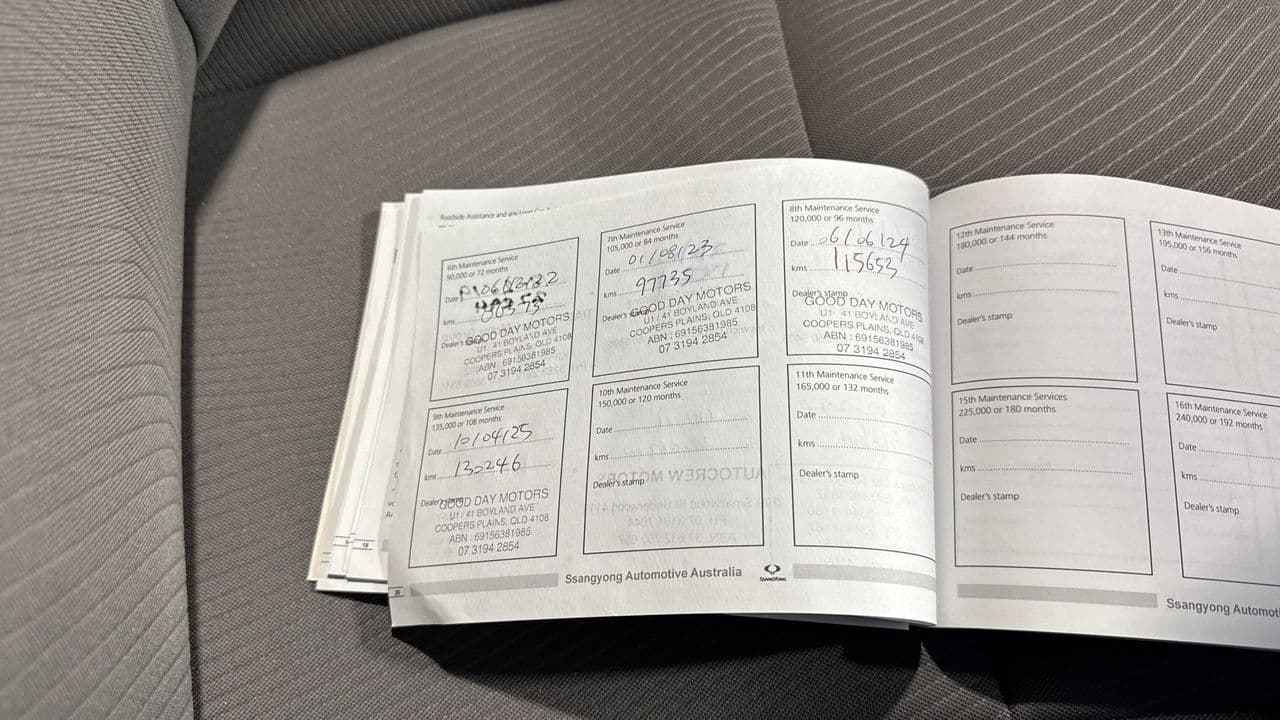 Roadside Assistance and any
6th Maintenance Service
90,000 or 72 months
Date
kms
Dealer's
GOOD DAY MOTORS
U1 / 41 BOYLAND AVE
COOPERS PLAINS, QLD 4108
ABN : 69156381985
07 3194 2854
7th Maintenance Service
105,000 or 84 months
Date 01/08/23
kms 97735
Dealer's
GOOD DAY MOTORS
U1 / 41 BOYLAND AVE
COOPERS PLAINS, QLD 4108
ABN : 69156381985
07 3194 2854
8th Maintenance Service
120,000 or 96 months
Date 06/06/24
kms 115653
Dealer's stamp
GOOD DAY MOTORS
U1 / 41 BOYLAND AVE
COOPERS PLAINS, QLD 4108
ABN : 69156381985
07 3194 2854
9th Maintenance Service
135,000 or 108 months
Date 10/04/25
kms 130246
Dealer's stamp
GOOD DAY MOTORS
U1 / 41 BOYLAND AVE
COOPERS PLAINS, QLD 4108
ABN : 69156381985
07 3194 2854
10th Maintenance Service
150,000 or 120 months
Date
kms
Dealer's stamp
11th Maintenance Service
165,000 or 132 months
Date
kms
Dealer's stamp
Ssangyong Automotive Australia
SSANGYONG
12th Maintenance Service
180,000 or 144 months
Date
kms
Dealer's stamp
13th Maintenance Service
195,000 or 156 months
Date
kms
Dealer's stamp
15th Maintenance Services
225,000 or 180 months
Date
kms
Dealer's stamp
16th Maintenance Service
240,000 or 192 months
Date
kms
Dealer's stamp
Ssangyong Automot